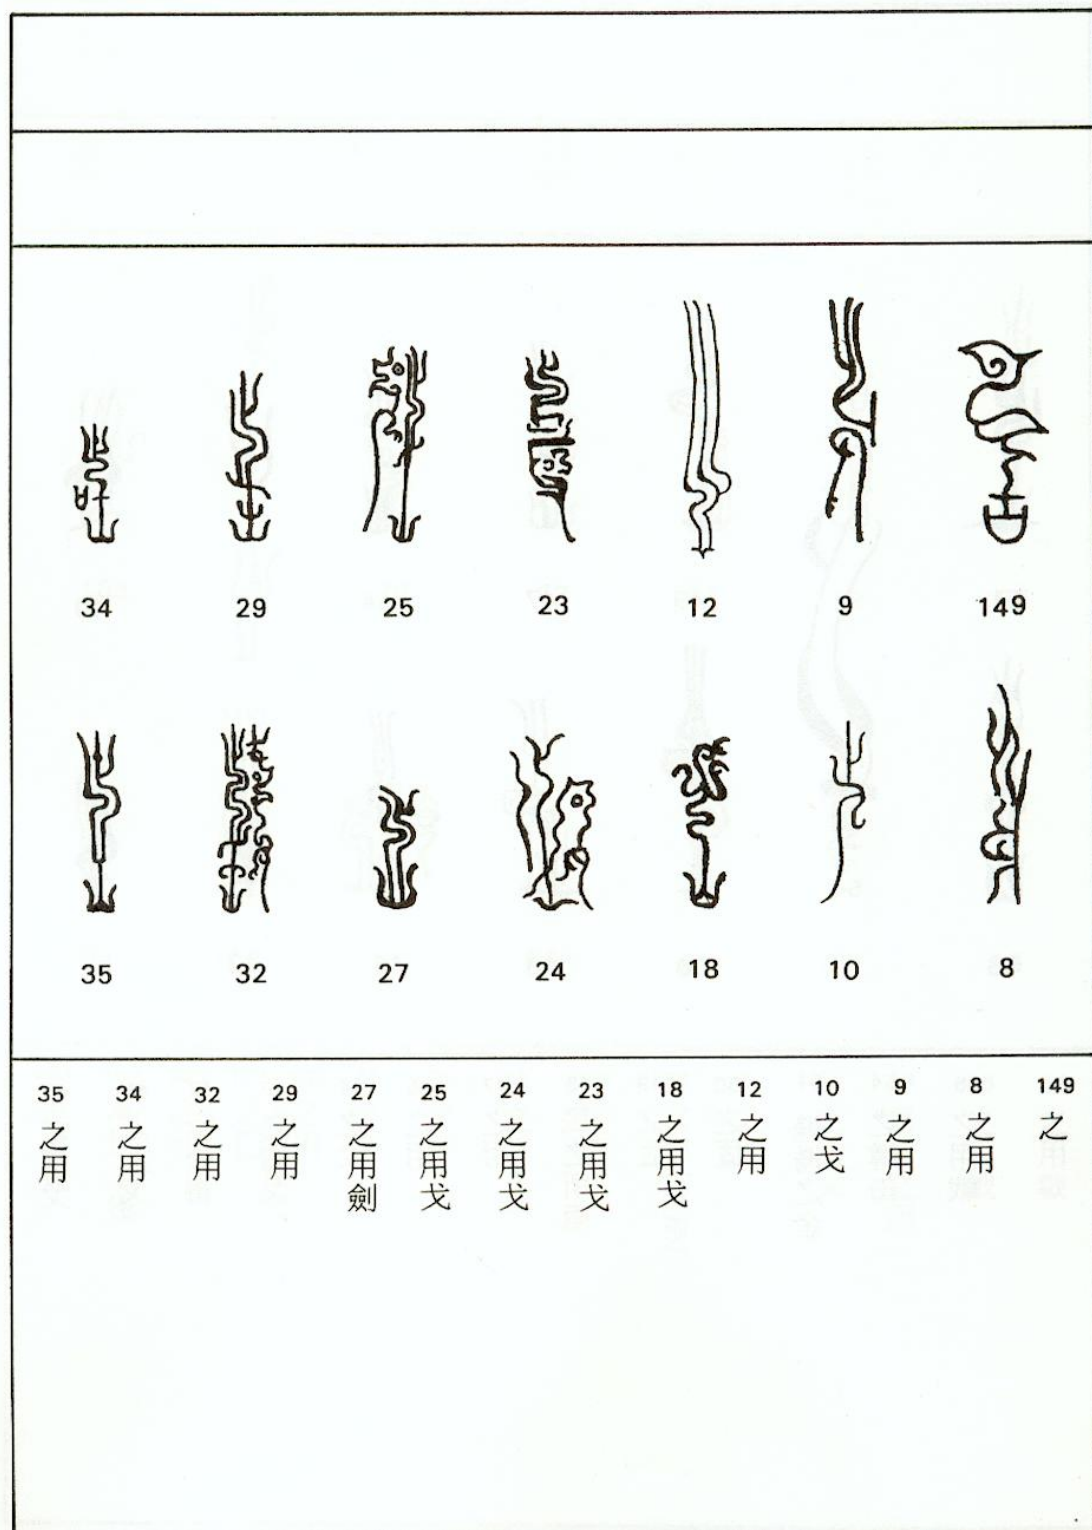 149 9 12 23 25 29 34
8 10 18 24 27 32 35
149 之
8 之用
9 之用
10 之戈
12 之用
18 之用戈
23 之用戈
24 之用戈
25 之用戈
27 之用劍
29 之用
32 之用
34 之用
35 之用